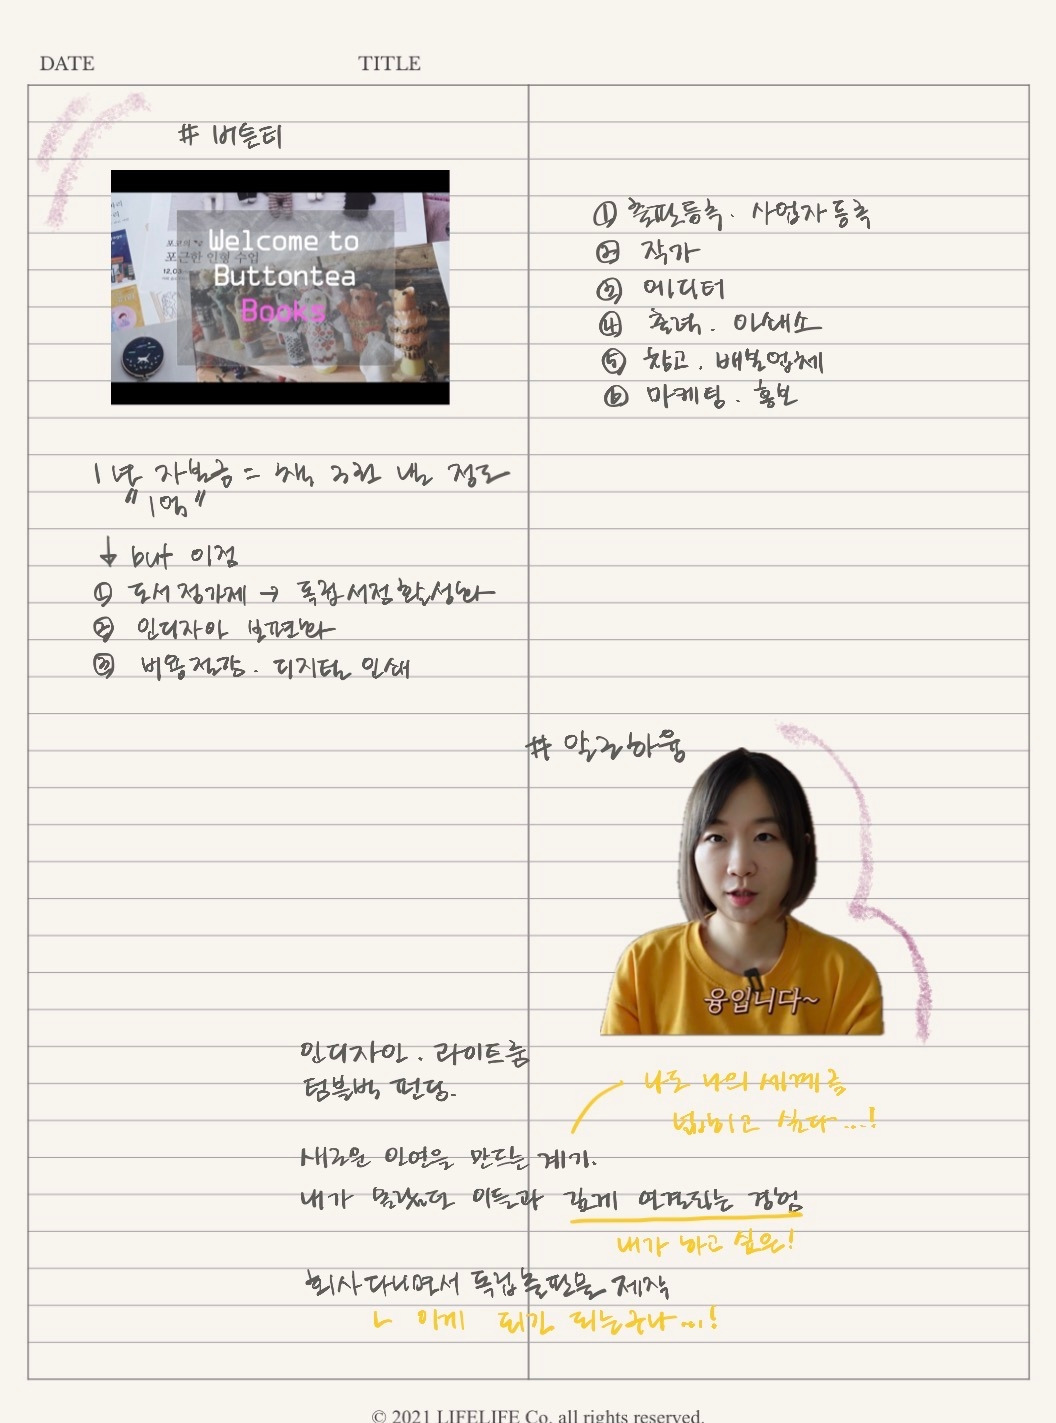 DATE
TITLE
# 버튼티
Welcome to
Buttontea
Books
포근한 인형 수업
1년 자본금 = 책 3권 낼 정도
"1억"
↓ but 이점
① 도서정가제 → 독립서점 활성화
② 인디자인 보편화
③ 비용절감. 디지털 인쇄
① 출판등록. 사업자 등록
② 작가
③ 에디터
④ 출력. 인쇄소
⑤ 창고. 배본업체
⑥ 마케팅. 홍보
# 알로하융
융입니다~
인디자인. 라이트룸
텀블벅 펀딩.
나도 나의 세계를
넓히고 싶다...!
새로운 인연을 만드는 계기.
내가 몰랐던 이들과 깊게 연결되는 경험
내가 하고 싶은!
회사다니면서 독립출판물 제작
ㄴ 이게 되긴 되는구나...!
© 2021 LIFELIFE Co. all rights reserved.